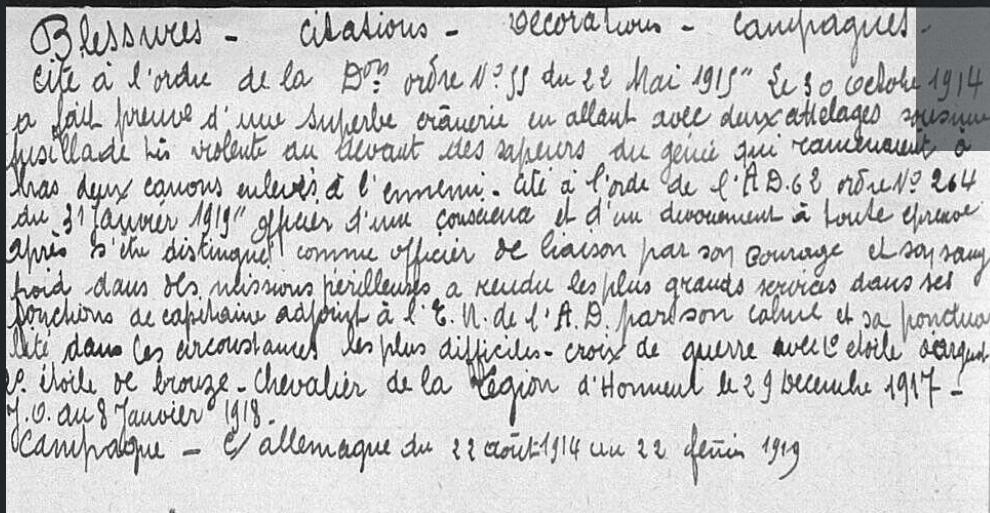 Blessures - citations - Décorations - campagnes -
cité à l'ordre de la Don ordre No 55 du 22 Mai 1915" Le 30 octobre 1914
a fait preuve d'une superbe crânerie en allant avec deux attelages sous une
fusillade très violente au devant des sapeurs du génie qui ramenaient à
bras deux canons enlevés à l'ennemi - cité à l'orde de l'A.D. 62 ordre No 264
du 31 Janvier 1919" officier d'une conscience et d'un devouement à toute épreuve
après s'être distingué comme officier de liaison par son courage et son sang
froid dans des missions périlleuses a rendu les plus grands services dans ses
fonctions de capitaine adjoint à l'E.M. de l'A.D. par son calme et sa ponctua
lité dans les circonstances les plus difficiles - croix de guerre avec étoile d'argent
étoile de bronze - Chevalier de la Légion d'Honneur le 29 Decembre 1917 -
J.O. du 8 Janvier 1918.
Campagne - c/ allemagne du 22 août 1914 au 22 1919